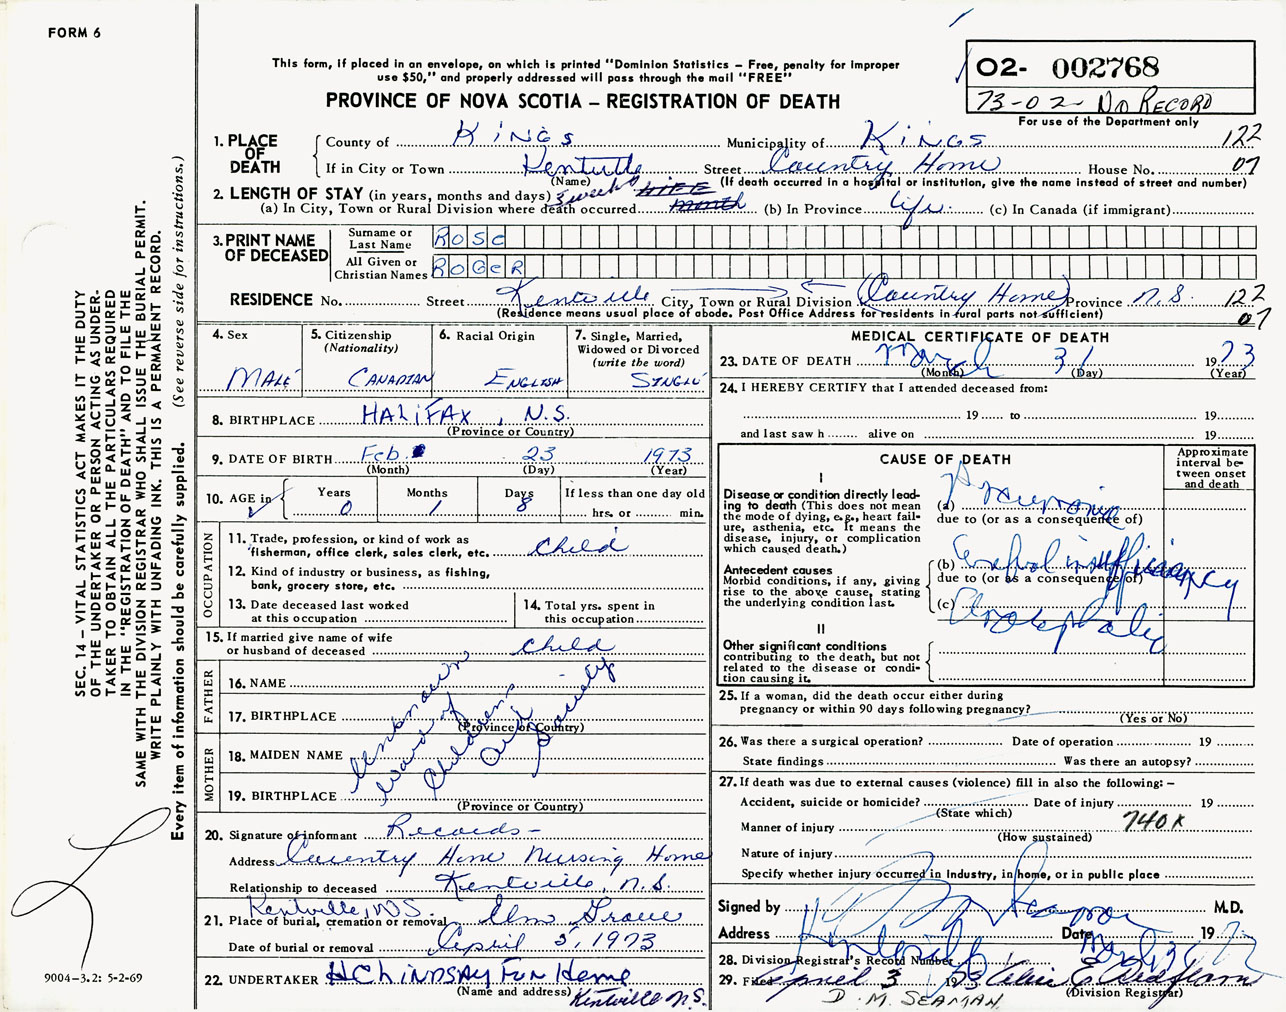 FORM 6
This form, if placed in an envelope, on which is printed "Dominion Statistics – Free, penalty for improper
use $50," and properly addressed will pass through the mail "FREE"
PROVINCE OF NOVA SCOTIA – REGISTRATION OF DEATH
02- 002768
73-02- No RECORD
For use of the Department only
1. PLACE OF DEATH
County of KINGS Municipality of KINGS 122
If in City or Town Kentville Street Country Home House No. 07
(Name) (If death occurred in a hospital or institution, give the name instead of street and number)
2. LENGTH OF STAY (in years, months and days) 3 weeks LIFE
(a) In City, Town or Rural Division where death occurred month (b) In Province Life (c) In Canada (if immigrant)
3. PRINT NAME OF DECEASED
Surname or Last Name ROSE
All Given or Christian Names ROGER
RESIDENCE No. Street Kentville City, Town or Rural Division (Country Home) Province N.S. 122
(Residence means usual place of abode. Post Office Address for residents in rural parts not sufficient) 07
4. Sex MALE
5. Citizenship (Nationality) CANADIAN
6. Racial Origin ENGLISH
7. Single, Married, Widowed or Divorced (write the word) SINGLE
8. BIRTHPLACE HALIFAX, N.S.
(Province or Country)
9. DATE OF BIRTH Feb. 23 1973
(Month) (Day) (Year)
10. AGE in Years 0 Months 1 Days 8 If less than one day old
hrs. or min.
OCCUPATION
11. Trade, profession, or kind of work as
fisherman, office clerk, sales clerk, etc. Child
12. Kind of industry or business, as fishing,
bank, grocery store, etc.
13. Date deceased last worked
at this occupation
14. Total yrs. spent in
this occupation
15. If married give name of wife
or husband of deceased Child
FATHER
16. NAME
17. BIRTHPLACE
(Province or Country)
MOTHER
18. MAIDEN NAME
19. BIRTHPLACE
(Province or Country)
Unknown
Ward of
Childrens
Aid
Society
20. Signature of informant Records-
Address Country Home Nursing Home
Relationship to deceased Kentville, N.S.
Kentville, NS
21. Place of burial, cremation or removal Elm Grove
Date of burial or removal April 5, 1973
22. UNDERTAKER H C LINDSAY Fun Home
(Name and address) Kentville N.S.
MEDICAL CERTIFICATE OF DEATH
23. DATE OF DEATH March 31 1973
(Month) (Day) (Year)
24. I HEREBY CERTIFY that I attended deceased from:
19 to 19
and last saw h alive on 19
CAUSE OF DEATH
Approximate interval between onset and death
I
Disease or condition directly lead-
ing to death (This does not mean
the mode of dying, e.g., heart fail-
ure, asthenia, etc. It means the
disease, injury, or complication
which caused death.)
(a) Pneumonia
due to (or as a consequence of)
Antecedent causes
Morbid conditions, if any, giving
rise to the above cause, stating
the underlying condition last.
(b) Cerebral insufficiency
due to (or as a consequence of)
(c)
II
Other significant conditions
contributing to the death, but not
related to the disease or condi-
tion causing it.
25. If a woman, did the death occur either during
pregnancy or within 90 days following pregnancy?
(Yes or No)
26. Was there a surgical operation? Date of operation 19
State findings Was there an autopsy?
27. If death was due to external causes (violence) fill in also the following: –
Accident, suicide or homicide? Date of injury 19
(State which)
Manner of injury 740K
(How sustained)
Nature of injury
Specify whether injury occurred in industry, in home, or in public place
Signed by M.D.
Address Kentville Date 19
28. Division Registrar's Record Number
29. Filed April 3 1973
(Division Registrar)
D. M. SEAMAN
SEC. 14 – VITAL STATISTICS ACT MAKES IT THE DUTY
OF THE UNDERTAKER OR PERSON ACTING AS UNDER-
TAKER TO OBTAIN ALL THE PARTICULARS REQUIRED
IN THE "REGISTRATION OF DEATH" AND TO FILE THE
SAME WITH THE DIVISION REGISTRAR WHO SHALL ISSUE THE BURIAL PERMIT.
WRITE PLAINLY WITH UNFADING INK. THIS IS A PERMANENT RECORD.
Every item of information should be carefully supplied. (See reverse side for instructions.)
9004–3.2: 5-2-69